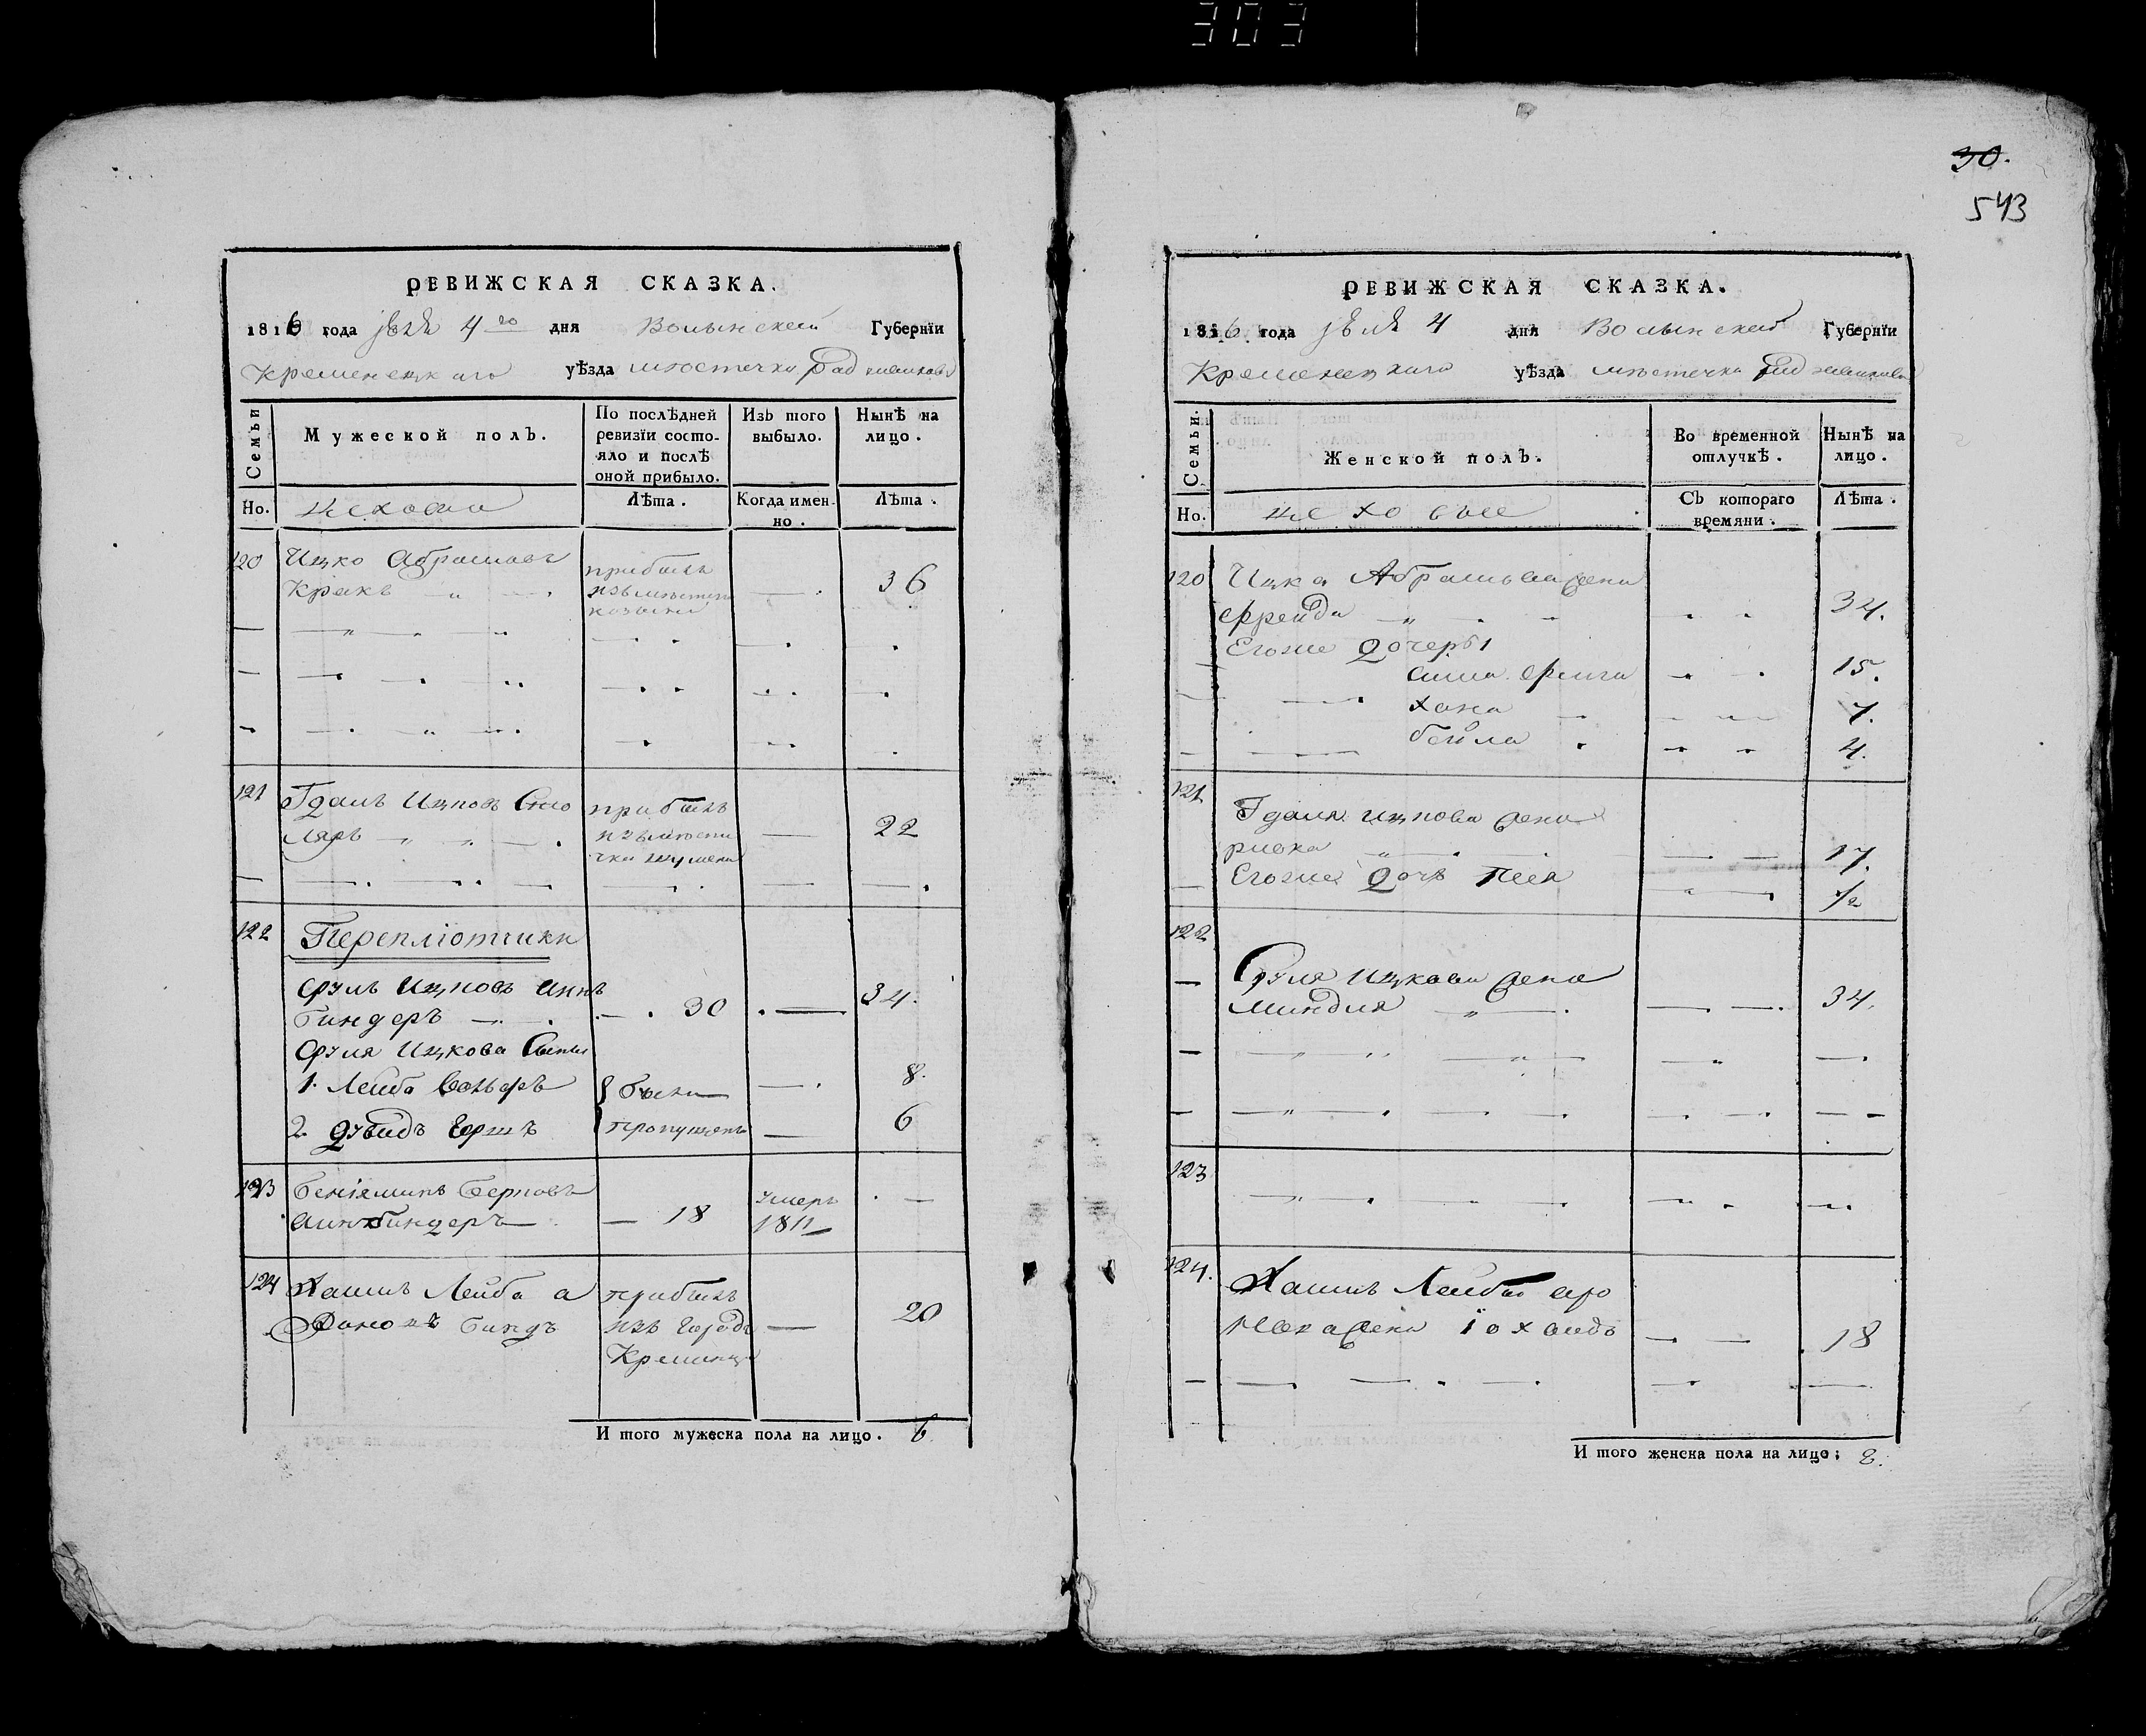 303
30.
543
РЕВИЖСКАЯ СКАЗКА.
1816 года 4 го дня Волынской Губернїи
Кременецкаго уѣзда мѣстечка
Семьи
Мужеской полъ.
По послѣдней ревизїи состо-
яло и послѣ
оной прибыло.
Изъ того выбыло.
Нынѣ на лицо.
Но.
Цеховые
Лѣта.
Когда имен-
но.
Лѣта.
120 Ицко Абрамовъ прибылъ
из мѣстеч 36
121 Гдаль Ицковъ Сто прибылъ
ляръ — изъ мѣсте — 22
чка
122 Перепліотчики
Сруль Ицковъ
Биндеръ — 30 — 34.
Сруля Ицкова Сыны
1. Лейба — 8.
2. Дувидъ Гершъ пропущены — 6
123 Бенїяминъ Берковъ умеръ —
Аинбиндеръ — 18 1811
124 Хаимъ Лейба прибылъ
изъ города — 20
Кременца
И того мужеска пола на лицо. 6
РЕВИЖСКАЯ СКАЗКА.
1816 года 4 дня Волынской Губернїи
Кременецкаго уѣзда мѣстечка
Семьи.
Женской полъ.
Во временной отлучкѣ.
Нынѣ на лицо.
Но.
Цеховые
Съ котораго
времяни.
Лѣта.
120 Ицка Абрамова жена
Фрейда 34.
Егоже Дочеры
15.
Хана 7.
Бейла 4.
121 Гдаля Ицкова жена
Ривка 17.
Егоже Дочь Пея 1/2
122
Сруля Ицкова жена
Миндля 34.
123
124. Хаимъ Лейбы
жена 18
И того женска пола на лицо; 8.